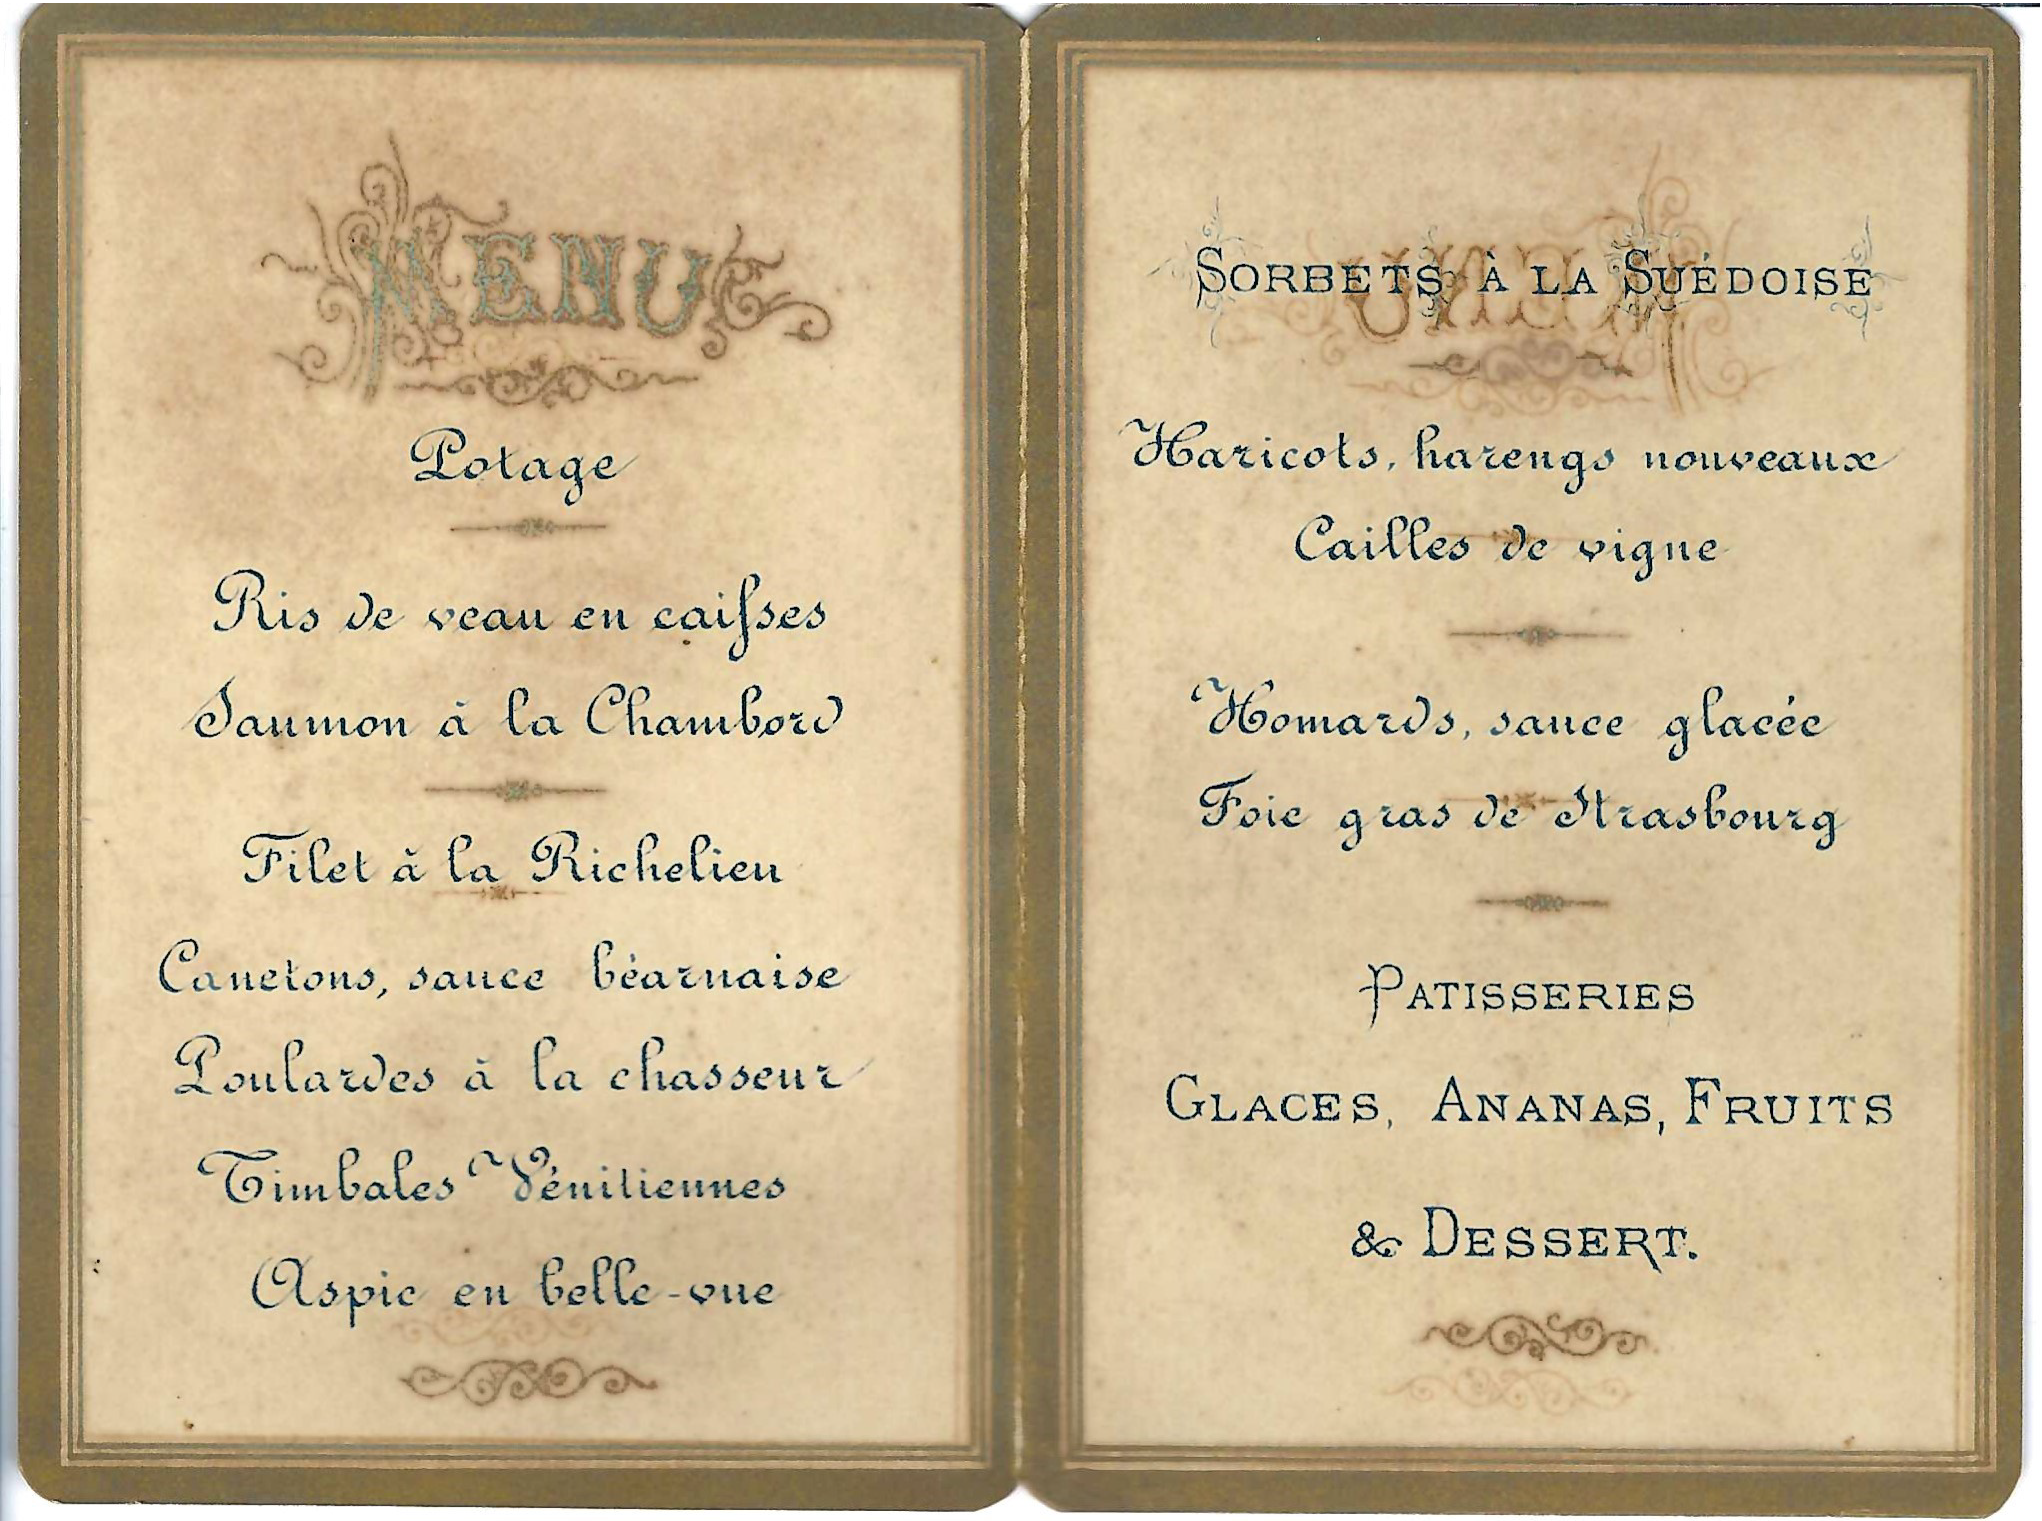 MENU
Potage
Ris de veau en caiſses
Saumon à la Chambord
Filet à la Richelieu
Canetons, sauce béarnaise
Poulardes à la chasseur
Timbales Vénitiennes
Aspic en belle-vue
SORBETS À LA SUÉDOISE
Haricots, harengs nouveaux
Cailles de vigne
Homards, sauce glacée
Foie gras de Strasbourg
PATISSERIES
GLACES, ANANAS, FRUITS
& DESSERT.